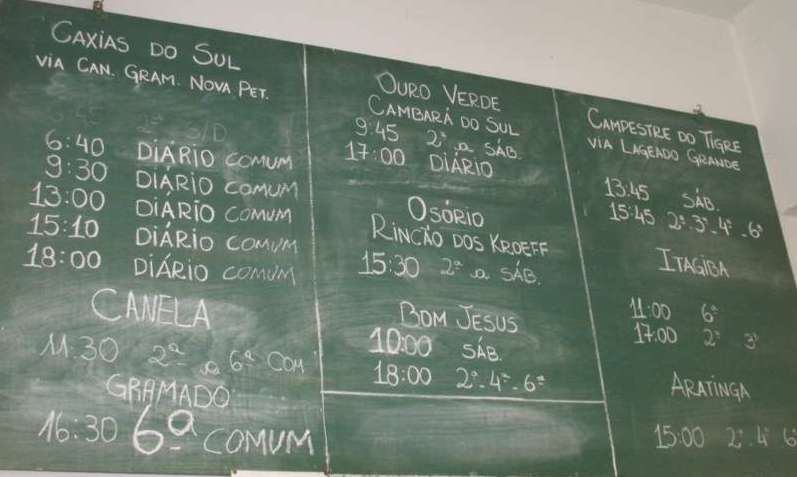 CAXIAS DO SUL
VIA CAN. GRAM. NOVA PET.
6:40 DIÁRIO COMUM
9:30 DIÁRIO COMUM
13:00 DIÁRIO COMUM
15:10 DIÁRIO COMUM
18:00 DIÁRIO COMUM
CANELA
11:30 2ª a 6ª COM
GRAMADO
16:30 6ª COMUM
OURO VERDE
CAMBARÁ DO SUL
9:45 2ª a SÁB.
17:00 DIÁRIO
OSÓRIO
RINCÃO DOS KROEFF
15:30 2ª a SÁB.
BOM JESUS
10:00 SÁB.
18:00 2ª-4ª-6ª
CAMPESTRE DO TIGRE
VIA LAGEADO GRANDE
13:45 SÁB.
15:45 2ª-3ª-4ª-6ª
ITAGIBA
11:00 6ª
17:00 2ª 3ª
ARATINGA
15:00 2ª-4ª 6